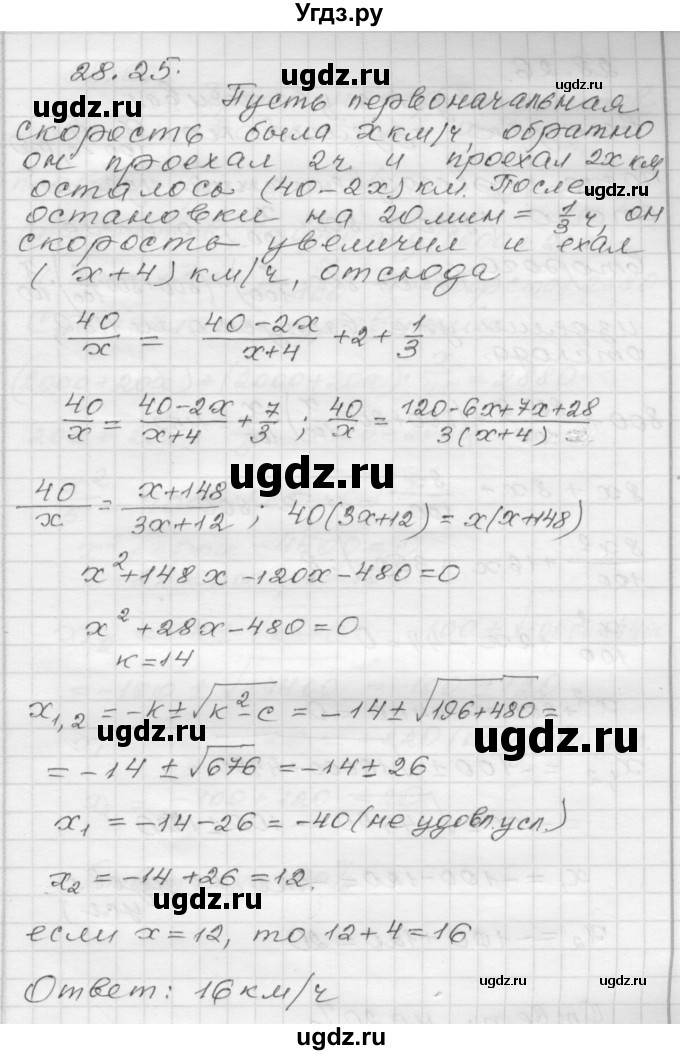 Угдз.ру
28.25.
Пусть первоначальная
скорость была x км/ч, обратно
он проехал 2ч и проехал 2x км,
осталось (40-2x) км. После
остановки на 20мин = 1/3 ч, он
скорость увеличил и ехал
(x+4) км/ч, отсюда
40/x = (40-2x)/(x+4) + 2 + 1/3
40/x = (40-2x)/(x+4) + 7/3 ; 40/x = (120-6x+7x+28)/(3(x+4))
40/x = (x+148)/(3x+12) ; 40(3x+12) = x(x+148)
x²+148x-120x-480=0
x²+28x-480=0
к=14
x₁,₂ = -к±√(к²-с) = -14±√(196+480) =
= -14 ± √676 = -14±26
x₁ = -14-26 = -40 (не удовл. усл.)
x₂ = -14+26 = 12.
если x=12, то 12+4=16
Ответ: 16 км/ч
ugdz.ru
ugdz.ru
ugdz.ru
ugdz.ru
ugdz.ru
ugdz.ru
ugdz.ru
ugdz.ru
ugdz.ru
ugdz.ru
ugdz.ru
ugdz.ru
ugdz.ru